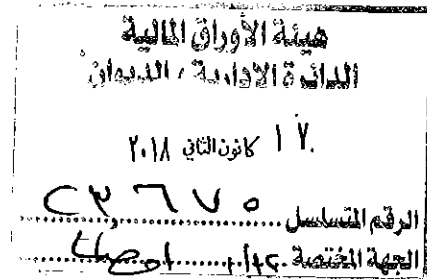 هيئة الأوراق المالية
الدائرة الادارية ، الديوان
١٧ كانون الثاني ٢٠١٨
الرقم المتسلسل
الجهة المختصة